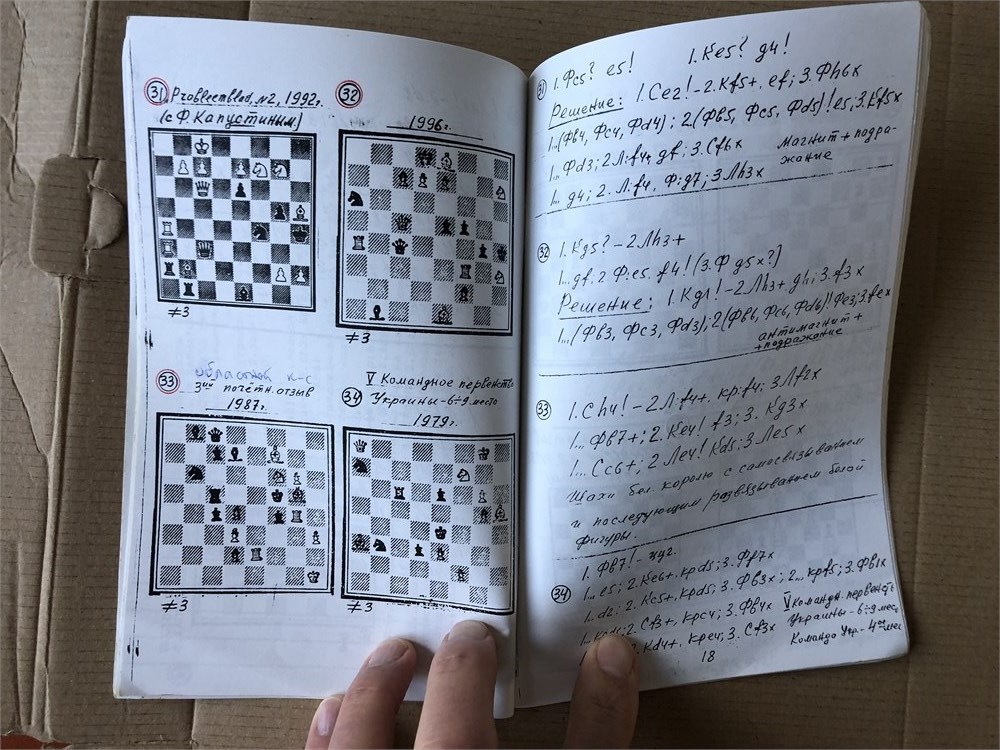 31. Problectblad, №2, 1992г.
(с Ф. Капустиным)
≠3
32
1996г.
≠3
33
областной к-с
3ий почётн. отзыв
1987г.
≠3
34
V Командное первенство
Украины - 6÷9 место
1979г.
≠3
31 1. Фс5? e5! 1. Ке5? g4!
Решение: 1. Се2! - 2. Кf5+, ef; 3. Фh6x
1...(Фв4, Фс4, Фd4); 2.(Фв5, Фс5, Фd5)! e5; 3. Кf5x
1... Фd3; 2. Л:f4+, gf; 3. Сf6x
Магнит + подра-
жание
1... g4; 2. Л:f4, Ф:g7; 3. Лh3x
32 1. Кg5? - 2. Лh3+
1... gf. 2. Ф:е5. f4! (3. Ф g5x?]
Решение: 1. Кg1! - 2. Лh3+ gh; 3. f3x
1...(Фв3, Фс3, Фd3); 2(Фв6, Фс6, Фd6)! Фе3; 3. fex
антимагнит +
+ подражание
33 1. Сh4! - 2. Лf4+, кр:f4; 3. Лf2x
1... Фв7+; 2. Ке4! f3; 3. Кg3x
1... Сс6+; 2. Ле4! Кd5; 3. Ле5x
Шахи бел. королю с самосвязыванием
и последующим развязыванием белой
фигуры.
34 1. Фв7! - цуг.
1... е5; 2. Ке6+, крd5; 3. Фf7x
1... d2; 2. Кс5+, крd5; 3. Фв3x; 2... крf5; 3. Фв1x
2. Сf3+, крс4; 3. Фв4x
Кd4+, кре4; 3. Сf3x
V командн. первенств
Украины - 6÷9 место
Команда Укр - 4ое мес
18